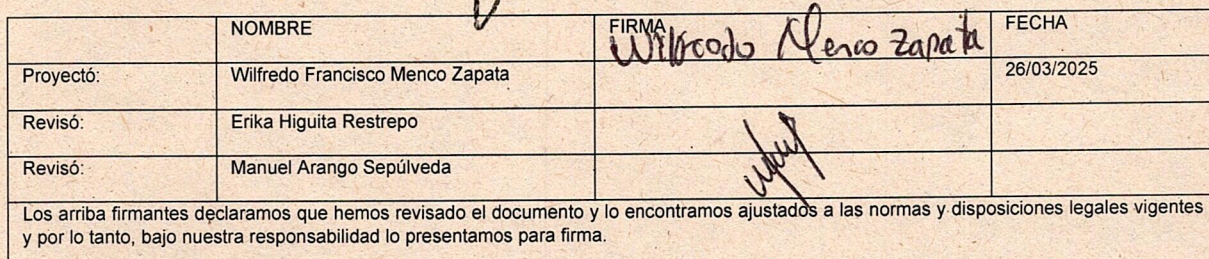 NOMBRE FIRMA FECHA
Wilfredo Menco Zapata
Proyectó: Wilfredo Francisco Menco Zapata 26/03/2025
Revisó: Erika Higuita Restrepo
Revisó: Manuel Arango Sepúlveda
Los arriba firmantes declaramos que hemos revisado el documento y lo encontramos ajustados a las normas y disposiciones legales vigentes
y por lo tanto, bajo nuestra responsabilidad lo presentamos para firma.